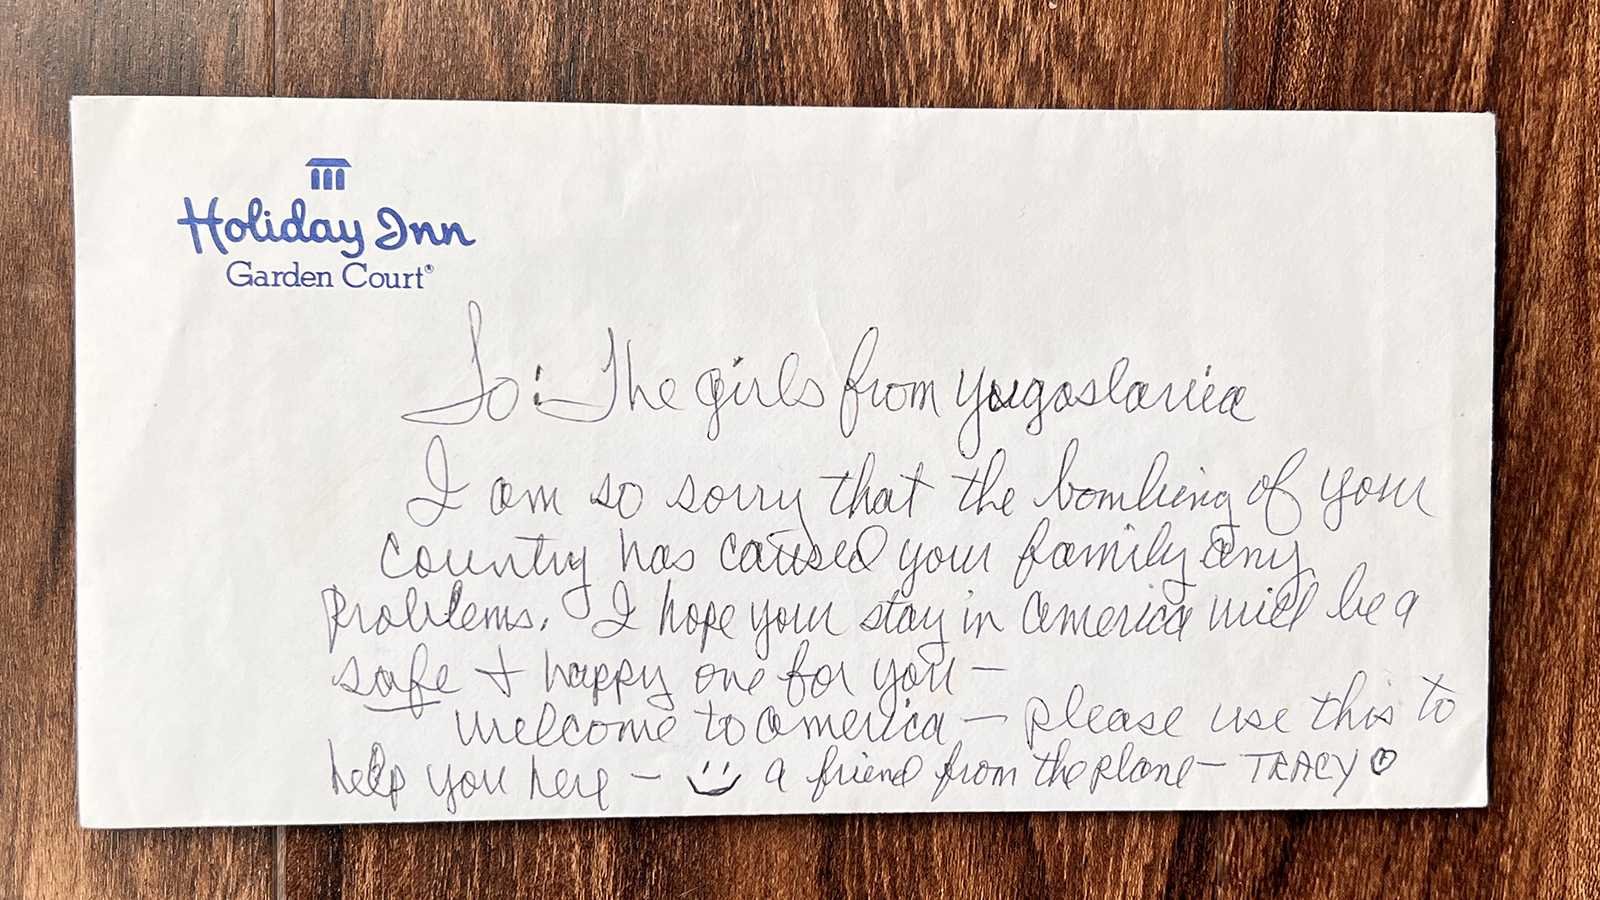 Holiday Inn
Garden Court®
To: The girls from Yugoslavia
I am so sorry that the bombing of your
country has caused your family any
problems. I hope your stay in America will be a
safe + happy one for you —
Welcome to America — please use this to
help you here — a friend from the plane — TRACY